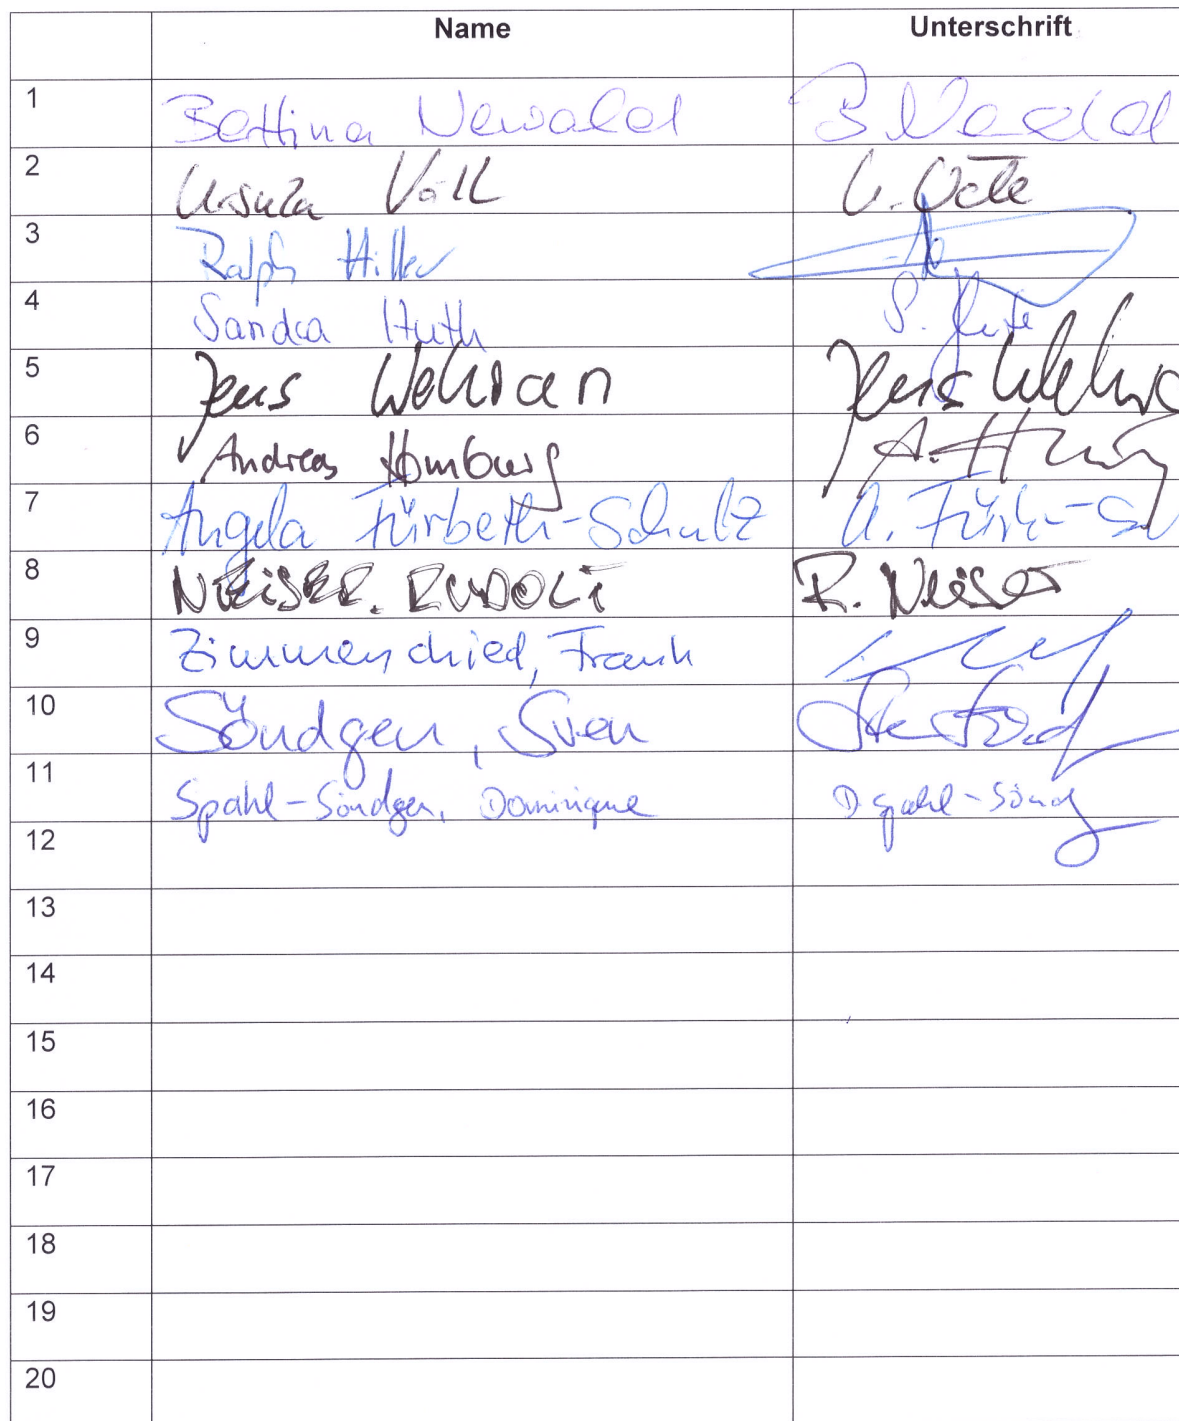 Name Unterschrift
1 Bettina Newald B Newald
2 Ursula Völl U.
3 Ralph Hiller
4 Sandra Huth S. Huth
5 Jens Wehran Jens
6 Andreas Homburg A.
7 Angela Fürbeth-Schulz A.
8 NEISER. RUDOLF R. Neiser
9 Zimmerschied, Frank
10 Söndgen, Sven
11 Spahl-Söndgen, Dominique D Spahl-Sönd
12
13
14
15
16
17
18
19
20